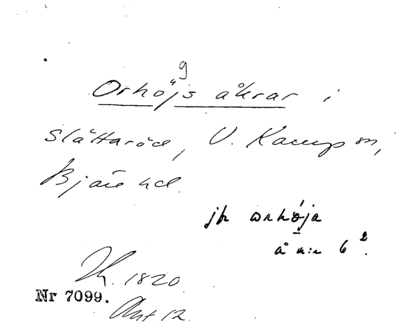 g
Orhöjs åkrar i
Slättaröd, V. Karups sn,
Bjäre hd.
jfr orhöja
å n:r 6².
Lk. 1820
Nr 7099.
Akt 12.